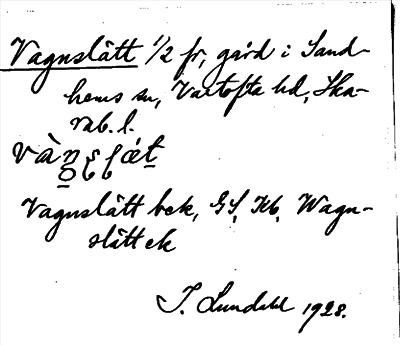 Vagnslätt 1/2 fr, gård i Sand-
hems sn, Vartofta hd, Ska-
rab. l.
Vagnslätt bek, GS, Kb, Wagn-
slätt ek
J. Lundahl 1928.